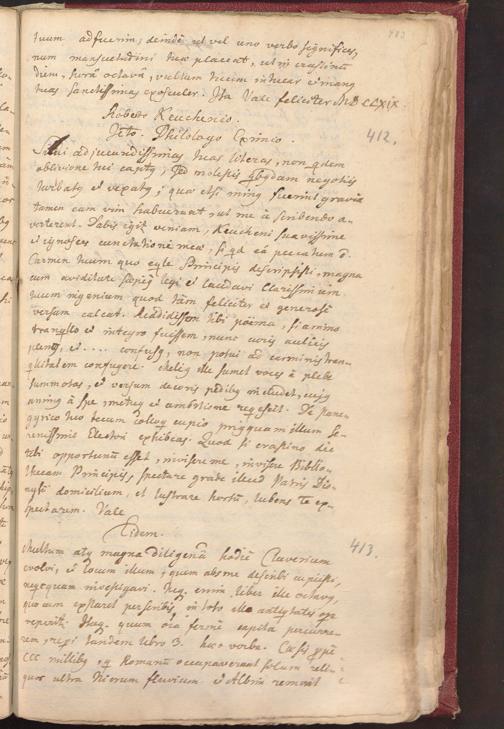 tuum adfuerim, deinde ut vel uno verbo significes,
num mansuetudini tuæ placeat, ut in crastinũ
diem, hora octava, vultum tuum intuear et manꝯ
tuas sanctissimas exosculer. Ita Vale feliciter MDCLXIX.
Roberto Keuchenio.
Jcto. Philologo Eximio.
412.
ad jucundissimas tuas literas, non qdem
oblivione tui captꝯ, sed molestis negotiis
turbatꝯ et vexatꝯ, quæ etsi fuerint gravia
tamen eam vim habuerunt, ut me a scribendo a-
verterent. Dabis igit veniam, Keucheni suavissime
et ignosces cunctationi meæ, si qd ea peccatum ē.
Carmen tuum quo Principis descripsisti, magna
cum aviditate legi et laudavi clarissimum
tuum ingenium quod tam feliciter et generose
versum calcat. Reddidissem tibi poëma, si animo
tranqllo et integro fuissem, nunc curis aulicis
et .... confusꝯ, non potui ad carminis tran-
qllitatem confugere. ille sumet voces à plebe
summotas, et versum decoris pedibꝯ includet, cujꝯ
animꝯ à spe, metu et ambitione reqescit. De pane-
gyrico tuo tecum colloq cupio, priusquam illum Se-
renissimo Electori exhibeas. Quod si crastino die
tibi opportunũ esset, invisere me, invisere Biblio-
thecam Principis, spectare grande illud Patris Dio-
nysi domicilium, et lustrare hortũ, lubens te ex-
spectarem. Vale
Eidem.
413.
Multum atꝗ magna diligentia hodie Cluverium
evolvi, et locum illum, quem abs me describi cupiisti,
nequicquam investigavi. Neꝗ enim liber ille octavꝯ,
quo eum exstare perscribis, in toto illo antiqtatis ope
reperit. Itaꝗ quum oīa ferme capita percurre-
rem, repi tandem libro 3. hæc verba. Cæsis ppe
CCC millibꝯ Romani occupaverant solum reli-
quos ultra Viadrum fluvium et Albim removit